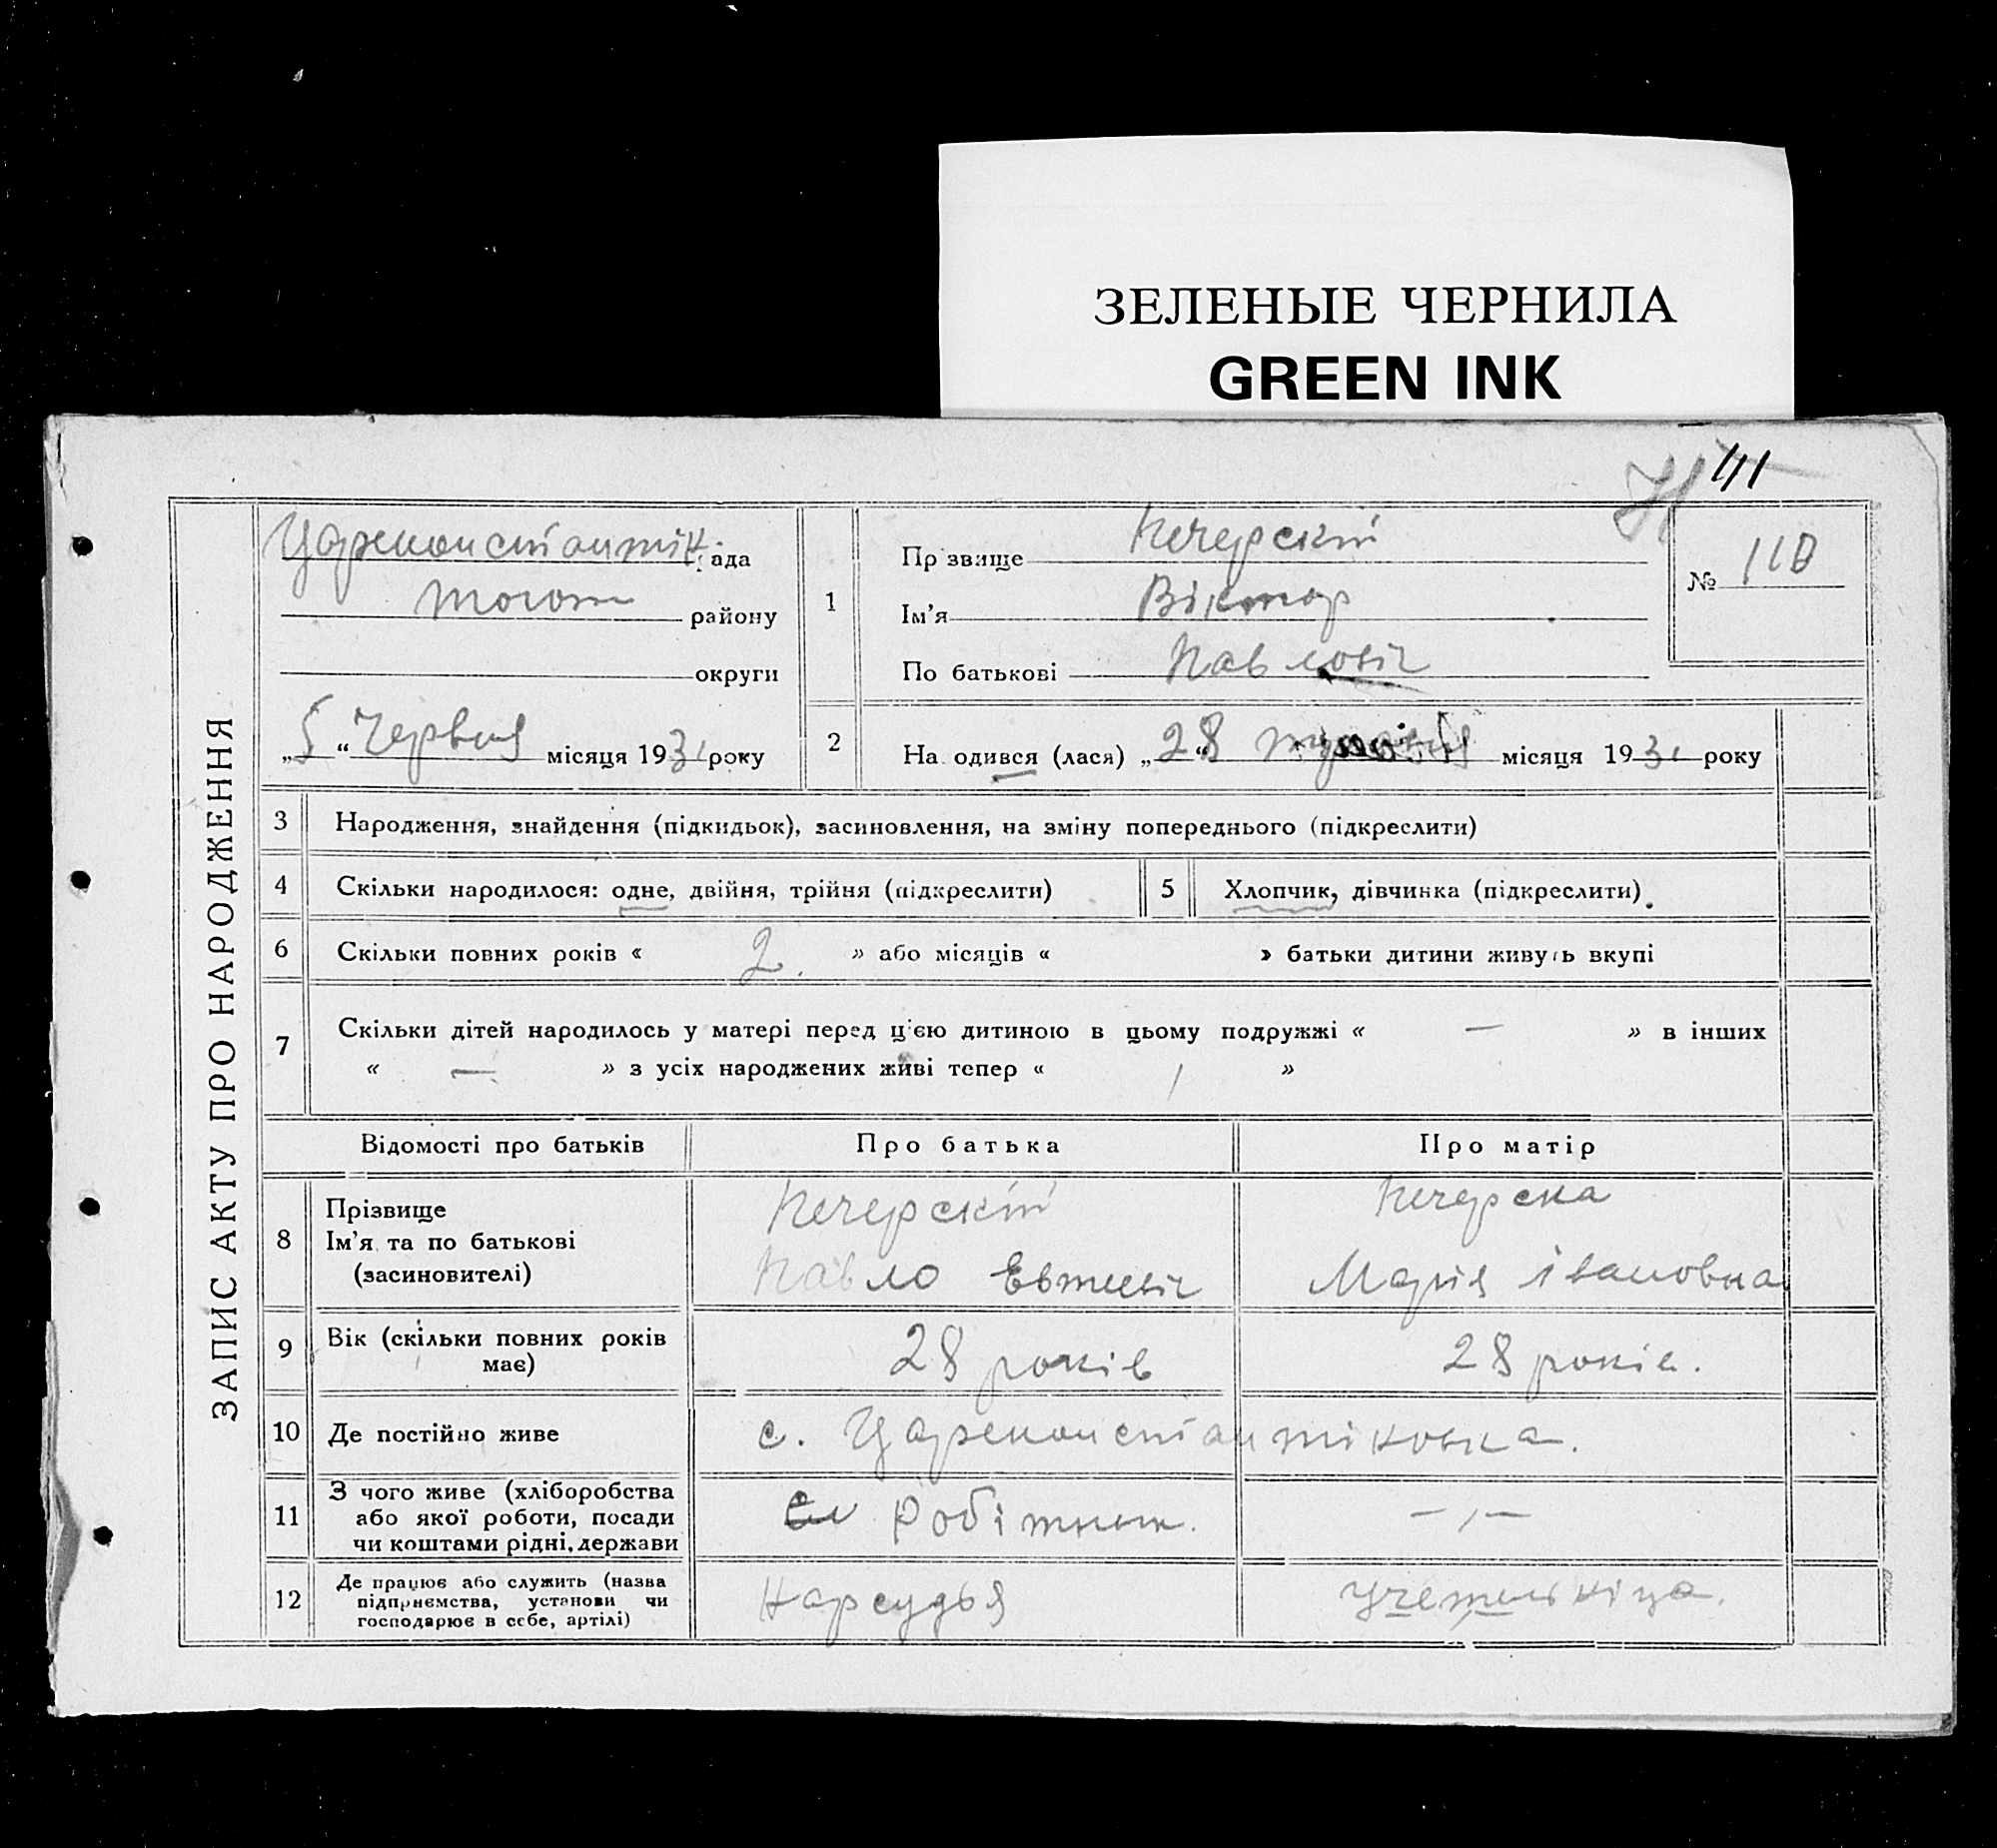 ЗЕЛЕНЫЕ ЧЕРНИЛА
GREEN INK
111
ЗАПИС АКТУ ПРО НАРОДЖЕННЯ
Царекостантік ада
тогож району
округи
„5“ Червня місяця 1931 року
1
Прізвище Печерскій
Ім’я Віктор
По батькові Павловіч
№ 118
2
На одився (лася) „28“ місяця 1931 року
3 Народження, знайдення (підкидьок), засиновлення, на зміну попереднього (підкреслити)
4 Скільки народилося: одне, двійня, трійня (підкреслити)
5 Хлопчик, дівчинка (підкреслити)
6 Скільки повних років « 2. » або місяців « » батьки дитини живуть вкупі
7 Скільки дітей народилось у матері перед ц’єю дитиною в цьому подружжі « — » в інших
« — » з усіх народжених живі тепер « 1 »
Відомості про батьків
Про батька
Про матір
8
Прізвище
Ім’я та по батькові
(засиновителі)
Печерскій
Павло
Печерска
Марія івановна
9
Вік (скільки повних років
має)
28 років
28 років.
10 Де постійно живе
с. Цареконстантіновка.
11
З чого живе (хліборобства
або якої роботи, посади
чи коштами рідні, держави
Робітник.
— „ —
12
Де працює або служить (назва
підприємства, установи чи
господарює в себе, артілі)
Нарсудья
учетельніца.